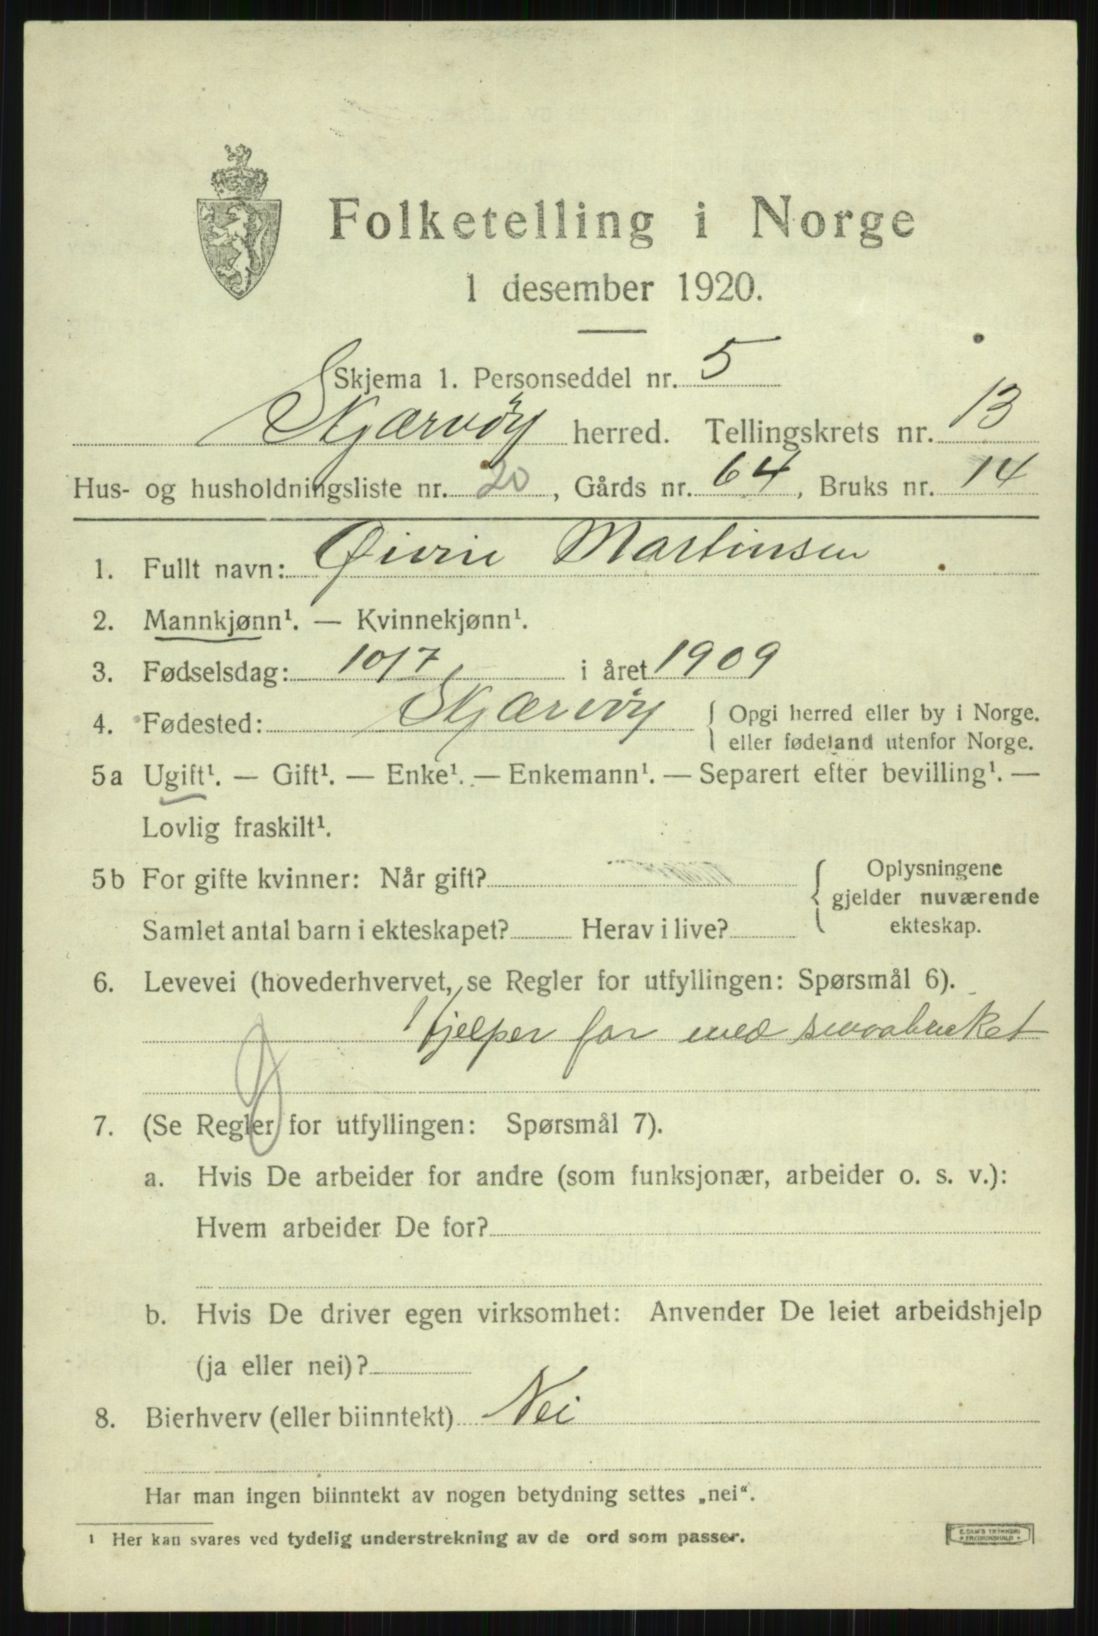 Folketelling i Norge
1 desember 1920.
Skjema 1. Personseddel nr. 5
Skjærvöy herred. Tellingskrets nr. 13
Hus- og husholdningsliste nr. 20, Gårds nr. 64, Bruks nr. 14
1. Fullt navn: Øivin Martinsen
2. Mannkjønn¹. — Kvinnekjønn¹.
3. Fødselsdag: 10/7 i året 1909
4. Fødested: Skjærvöy { Opgi herred eller by i Norge.
eller fødeland utenfor Norge.
5a Ugift¹. — Gift¹. — Enke¹. — Enkemann¹. — Separert efter bevilling¹. —
Lovlig fraskilt¹.
5b For gifte kvinner: Når gift? { Oplysningene
gjelder nuværende
Samlet antal barn i ekteskapet? Herav i live? ekteskap.
6. Levevei (hovederhvervet, se Regler for utfyllingen: Spørsmål 6).
Hjelper far med smaabruket
7. (Se Regler for utfyllingen: Spørsmål 7).
a. Hvis De arbeider for andre (som funksjonær, arbeider o. s. v.):
Hvem arbeider De for?
b. Hvis De driver egen virksomhet: Anvender De leiet arbeidshjelp
(ja eller nei)?
8. Bierhverv (eller biinntekt) Nei
Har man ingen biinntekt av nogen betydning settes „nei“.
¹ Her kan svares ved tydelig understrekning av de ord som passer.